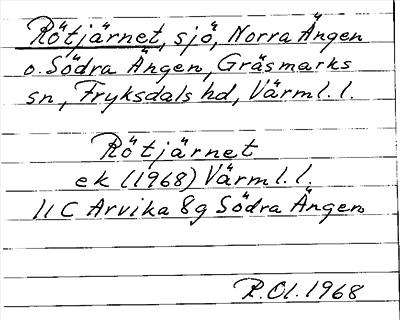 Rötjärnet, sjö, Norra Ängen
o. Södra Ängen, Gräsmarks
sn, Fryksdals hd, Värml. l.
Rötjärnet
ek (1968) Värml. l.
11 C Arvika 8g Södra Ängen
R.Ol. 1968